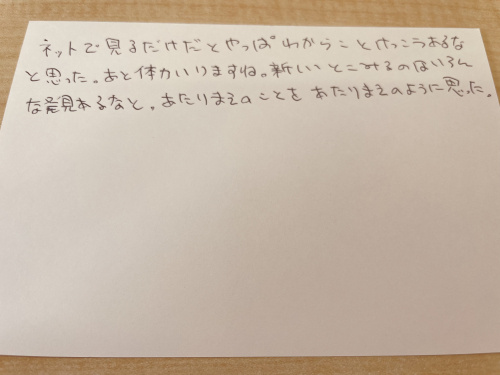 ネットで見るだけだとやっぱわからことけっこうあるな
と思った。あと体力いりますね。新しいとこみるのはいろん
な発見あるなと。あたりまえのことをあたりまえのように思った。